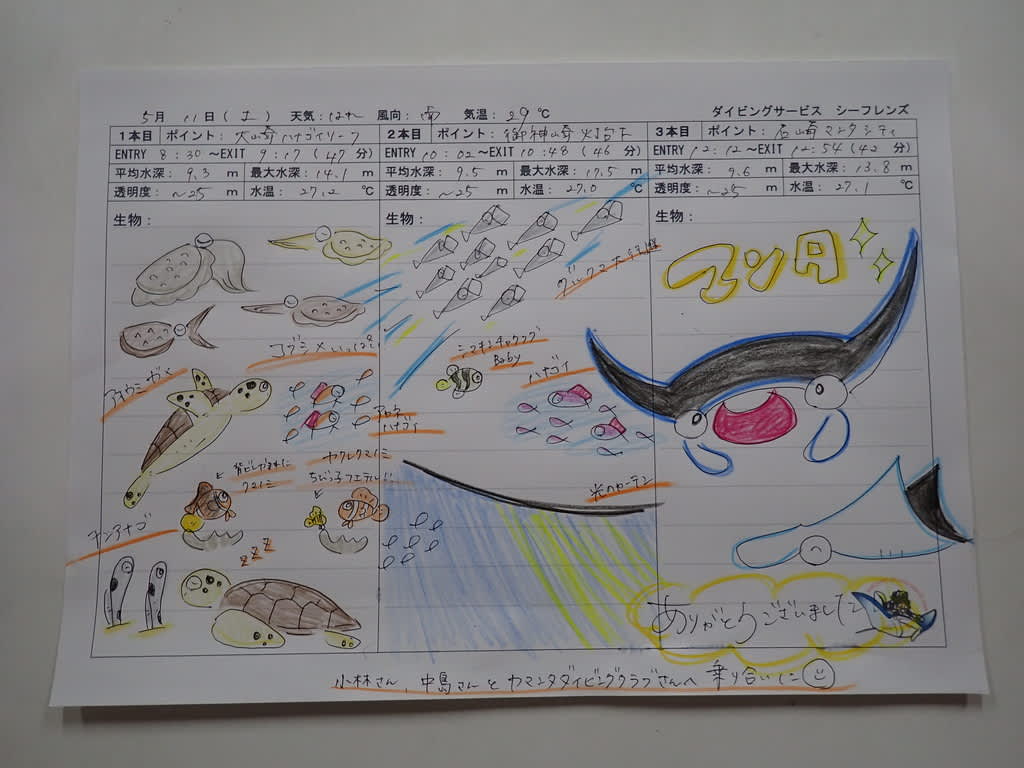 5月 11日(土) 天気:はれ 風向:南 気温:29℃ ダイビングサービス シーフレンズ
1本目 ポイント:大崎ハナゴイリーフ
ENTRY 8:30～EXIT 9:17(47分)
平均水深:9.3 m 最大水深:14.1 m
透明度:～25 m 水温:27.2 ℃
生物:
コブシメいっぱい
アオウミガメ
アカネハナゴイ
ヤクレクマノミ
クマノミ
チンアナゴ
zzz
2本目 ポイント:御神崎灯台下
ENTRY 10:02～EXIT 10:48(46分)
平均水深:9.5 m 最大水深:17.5 m
透明度:～25 m 水温:27.0 ℃
生物:
グルクマ
シマキンチャクフグ
Baby
ハナゴイ
光のカーテン
3本目 ポイント:石崎マンタシティ
ENTRY 12:12～EXIT 12:54(42分)
平均水深:9.6 m 最大水深:13.8 m
透明度:～25 m 水温:27.1 ℃
生物:
マンタ
ありがとうございました
小林さん、中島さんとカマンタダイビングクラブさんへ乗り合いしたに